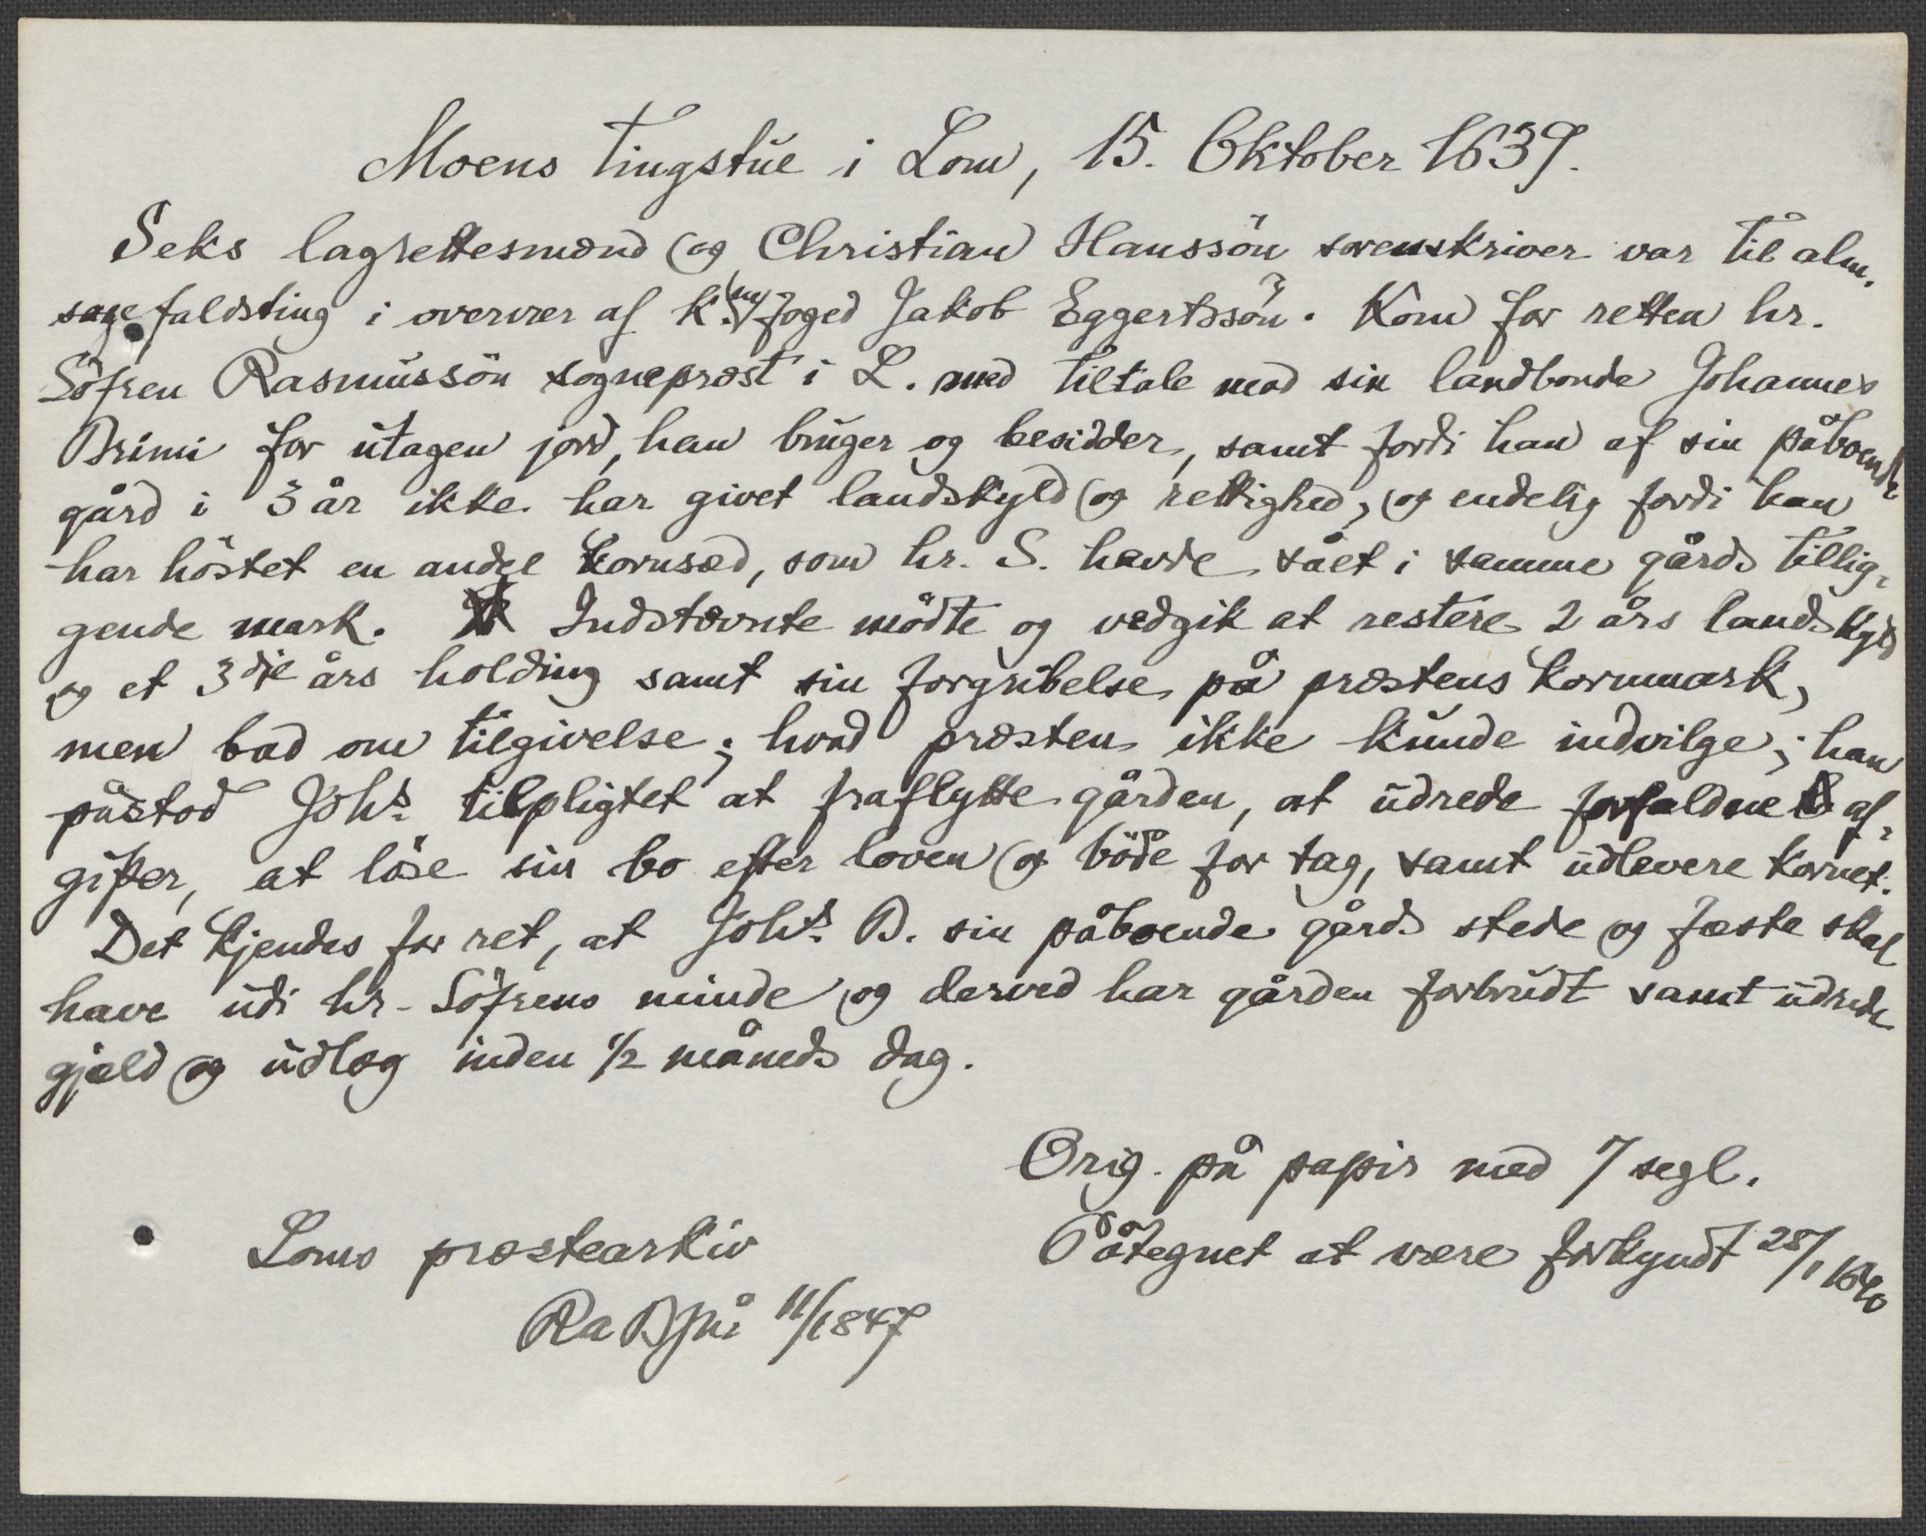 Moens tingstue i Lom, 15. Oktober 1639.
Seks lagrettesmænd og Christian Hanssön sorenskriver var til alm.
sagefaldsting i overvær af K. M. foged Jakob Eggertssön. Kom for retten hr.
Söfren Rasmussön sogneprest i L. med tiltale mod sin landbonde Johannes
Brimi for utagen jord, han bruger og besidder, samt fordi han af sin påboende
gård i 3 år ikke har givet landskyld og rettighed, og endelig fordi han
har höstet en andel kornsæd, som hr. S. havde sået i samme gårds tillig-
gende mark. Indstævnte mödte og vedgik at restere 2 års landskyld
og et 3die års holding samt sin forgribelse på præstens kornmark,
men bad om tilgivelse; hvad præsten ikke kunde indvilge; han
påstod Johs. tilpligtet at fraflytte gården, at udrede forfaldne af-
gifter, at löse sin bo efter loven og böde for tag, samt udlevere kornet.
Det kjendes for ret, at Johs. B. sin påboende gårds stede og fæste skal
have udi hr. Söfrens minde og derved har gården forbrudt samt udrede
gjæld og udlæg inden 1/2 måneds dag.
Orig. på papir med 7 segl.
Påtegnet at være forkyndt 28/1 1640
Loms præstearkiv
Ra 11/1847